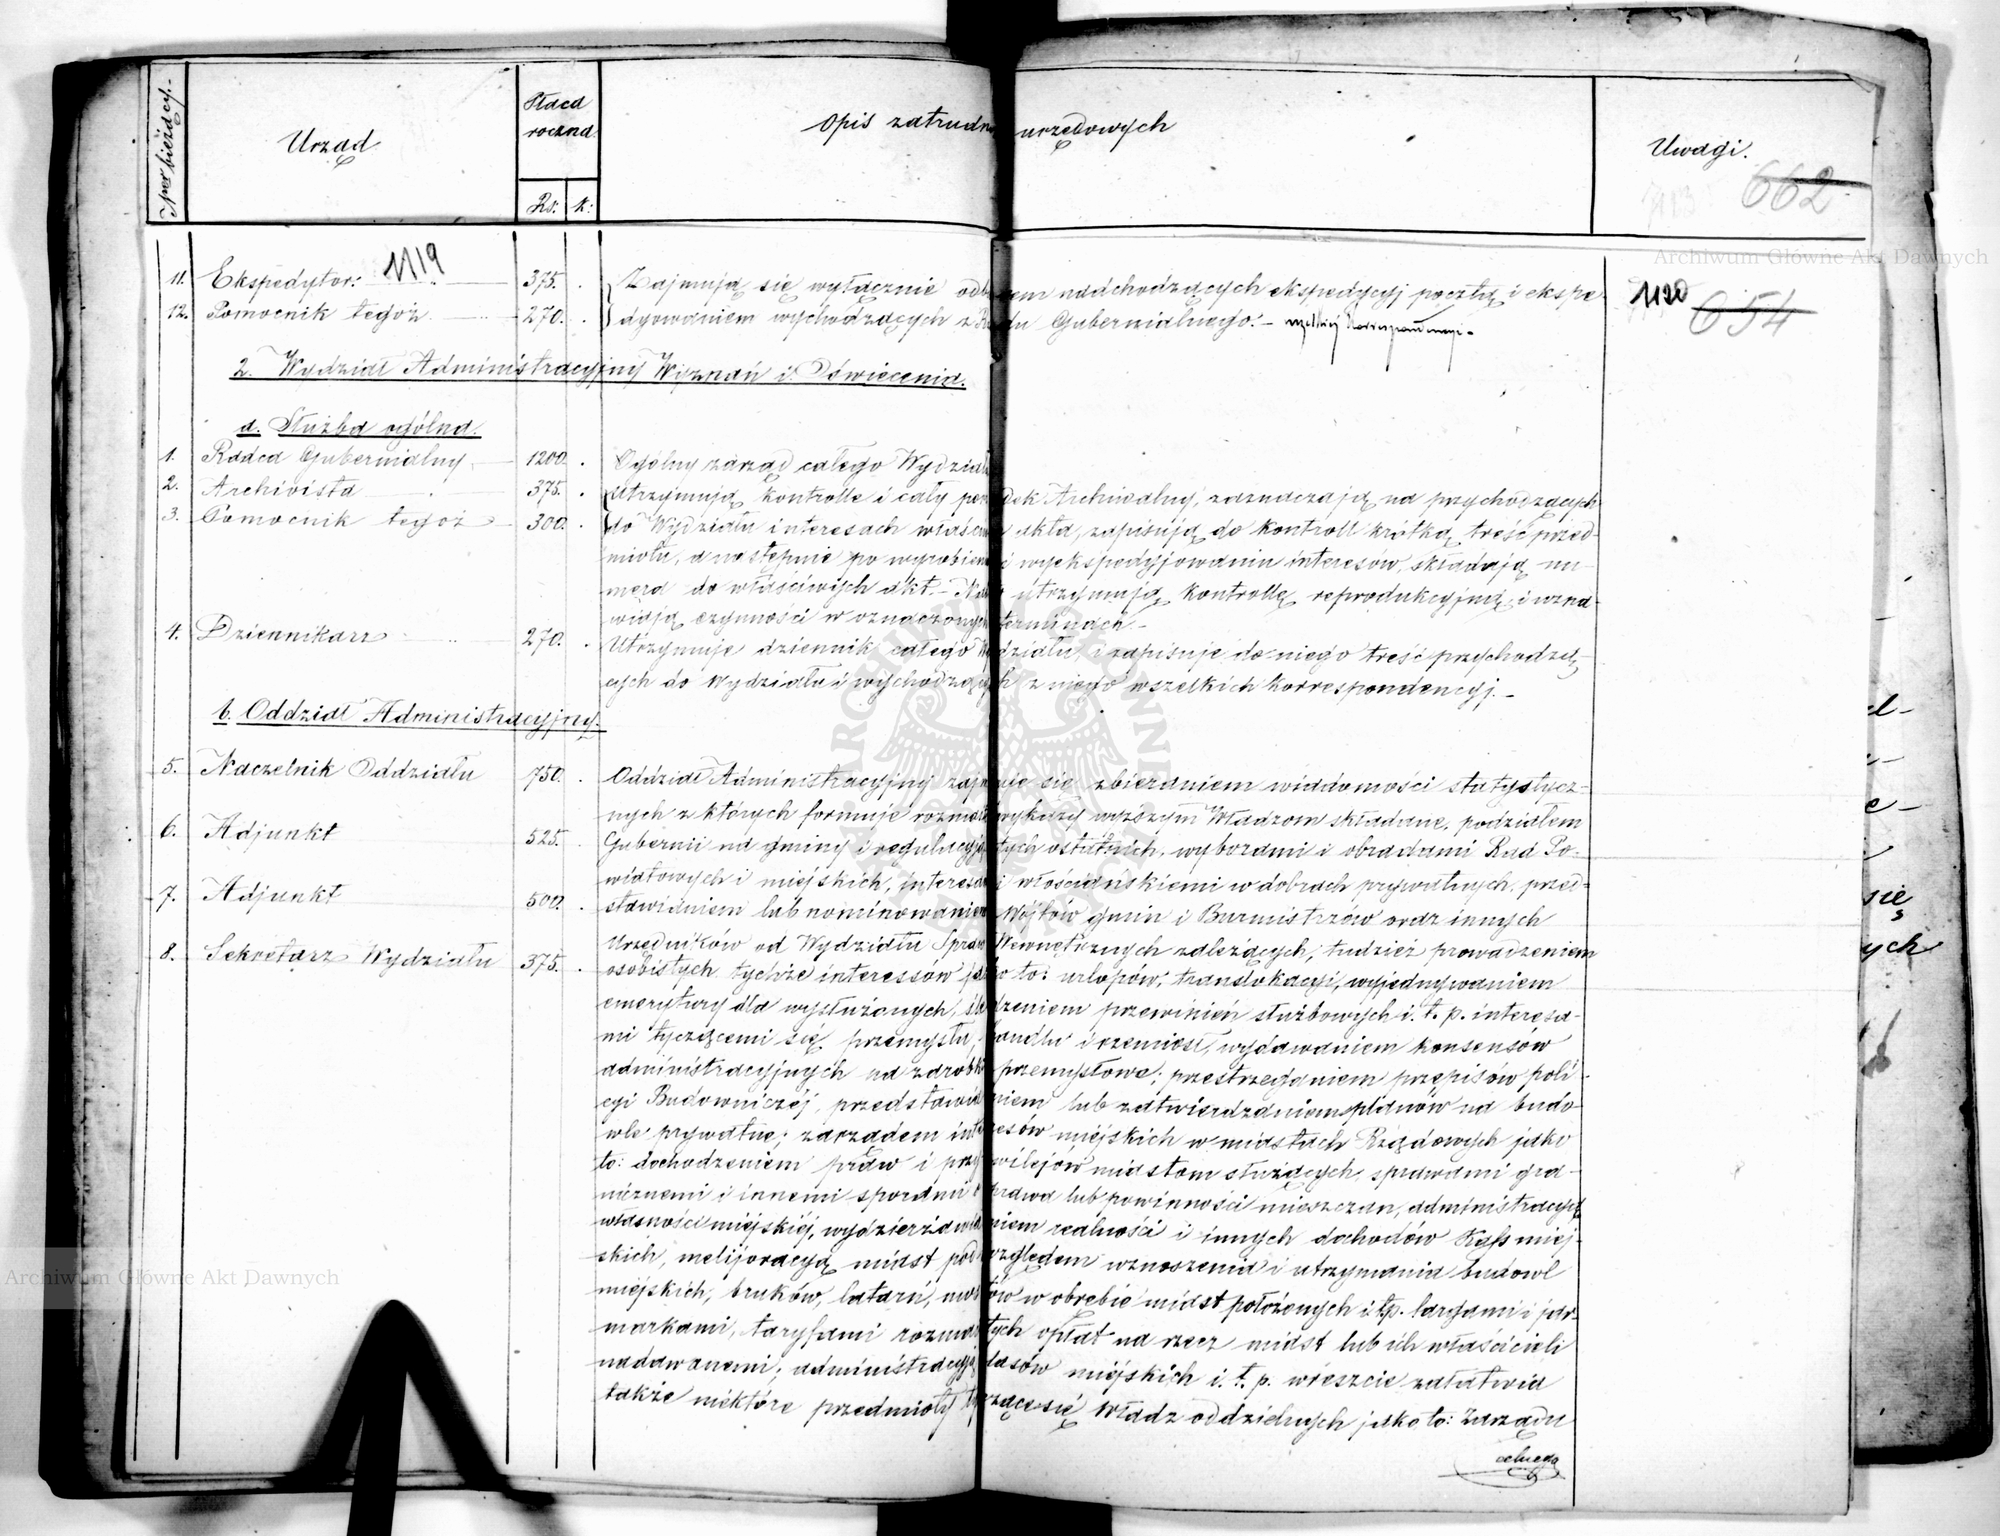 Nper bieżący.
Urząd
Płaca
roczna
Rs. k:
Opis zatrudn urzędowych
Uwagi.
662
Archiwum Główne Akt Dawnych
1119
1120
654
11. Ekspedytor: 375. Zajmują się wyłącznie odbiorem nadchodzących ekspedycyj pocztą i ekspe-
12. Pomocnik tegoż 270. dyowaniem wychodzących z Rządu Gubernialnego. – wszelkiej Korrespondencyi. –
2. Wydział Administracyjny Wyznań i Oświecenia.
a. Służba ogólna.
1. Radca Gubernialny 1200. Ogólny zarząd całego Wydziału
2. Archivista 375. Utrzymują kontrolle i cały porządek Archiwalny, zaznaczają na przychodzących
3. Pomocnik tegoż 300. do Wydziału interesach właściwe akta, zapisują do kontroll krótką treść przed-
miotu, a następnie po wyrobieniu i wyekspedyjowaniu interesów, składają nu-
mera do właściwych akt. – utrzymują kontrollę reprodukcyjną i wzna-
wiają czynności w oznaczonych terminach. –
4. Dziennikarz 270. Utrzymuje dziennik całego Wydziału, i zapisuje do niego treść przychodzą-
cych do Wydziału i wychodzących z niego wszelkich korrespondencyj. –
b. Oddział Administracyjny.
5. Naczelnik Oddziału 750. Oddział Administracyjny zajmuje się zbieraniem wiadomości statystycz-
nych z których formuje rozmaite wykazy wyższym Władzom składane, podziałem
6. Adjunkt 525. Gubernii na gminy i regulacyją tych ostatnich, wyborami i obradami Rad Po-
wiatowych i miejskich, interesami włościańskiemi w dobrach prywatnych, przed-
7. Adjunkt 500. stawianiem lub nominowaniem Wójtów gmin i Burmistrzów oraz innych
Urzędników od Wydziału Spraw Wewnętrznych zależących, tudzież prowadzeniem
8. Sekretarz Wydziału 375. osobistych tychże interessów jako to: urlopów, translokacyi, wyjednywaniem
emerytury dla wysłużonych, śledzeniem przewinień służbowych i. t. p. interesa-
mi tyczącemi się przemysłu, handlu i rzemiosł, wydawaniem konsensów
administracyjnych na zarobki przemysłowe; przestrzeganiem przepisów poli-
cyi Budowniczéj, przedstawianiem lub zatwierdzaniem planów na budo-
wle prywatne; zarządem interesów miejskich w miastach Rządowych jako
to: dochodzeniem praw i przywilejów miastom służących, sprawami gra-
nicznemi i innemi sporami o prawa lub powinności mieszczan, administracyją
własności miejskiéj, wydzierżawianiem realności i innych dochodów Kass miej-
skich, melijoracyą miast pod względem wznoszenia i utrzymania budowl
miejskich, bruków, latarń, mostów w obrębie miast położonych i t.p. targami i jar-
markami, taryfami rozmaitych opłat na rzecz miast lub ich właścicieli
nadawanemi; administracyją lasów miejskich i. t. p. wreszcie załatwia
także niektóre przedmioty tyczące się Władz oddzielnych jako to: Zarządu
Archiwum Główne Akt Dawnych
się
ych